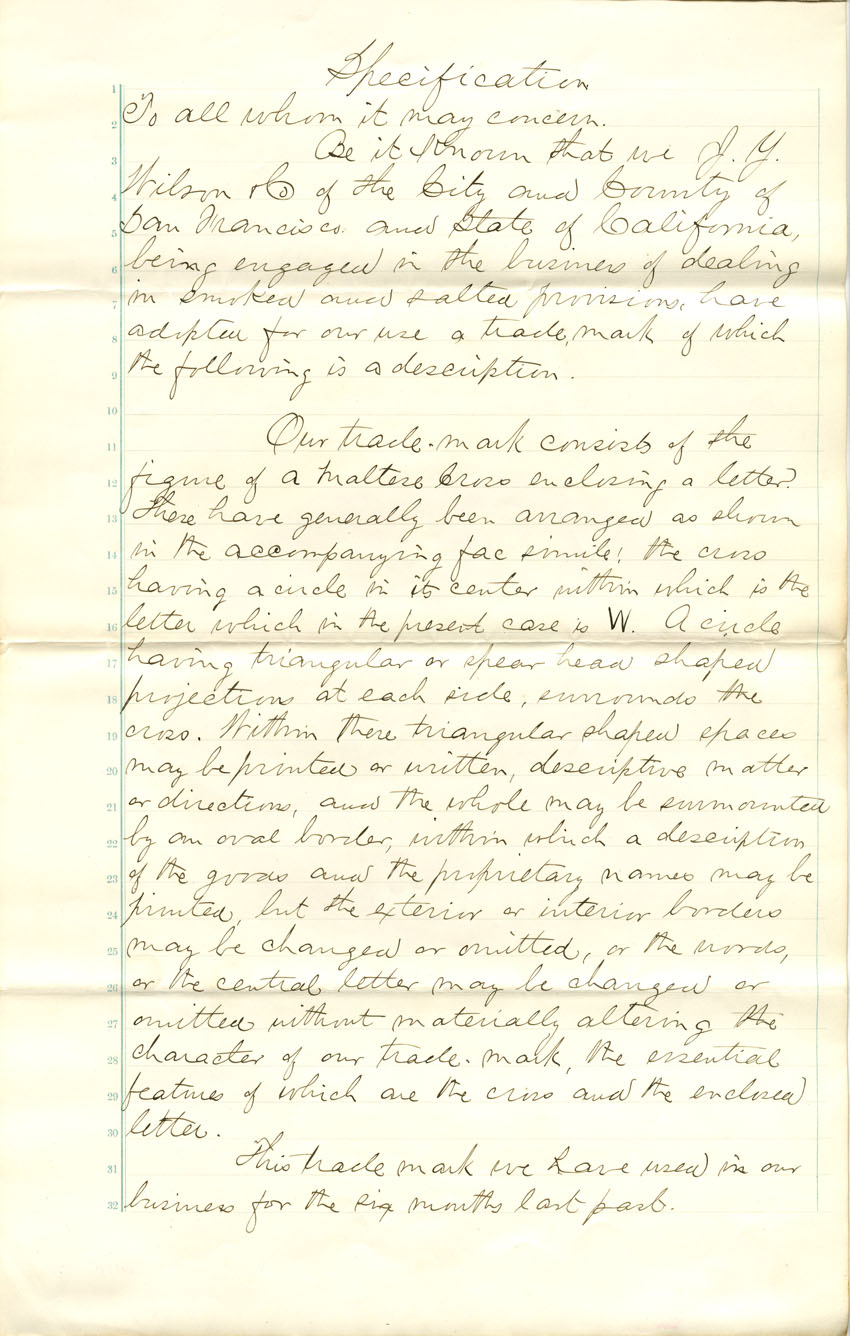 Specification
1
2 To all whom it may concern.
3 Be it Known that we J. Y.
4 Wilson & Co of the City and County of
5 San Francisco. and State of California,
6 being engaged in the business of dealing
7 in smoked and salted provisions, have
8 adopted for our use a trade, mark of which
9 the following is a description.
10
11 Our trade-mark consists of the
12 figure of a Maltese Cross enclosing a letter.
13 These have generally been arranged as shown
14 in the accompanying fac simile; the cross
15 having a circle in its center within which is the
16 letter which in the present case is W. A circle
17 having triangular or spear head shaped
18 projections at each side, surrounds the
19 cross. Within these triangular shaped spaces
20 may be printed or written, descriptive matter
21 or directions, and the whole may be surmounted
22 by an oval border, within which a description
23 of the goods and the proprietary names may be
24 printed, but the exterior or interior borders
25 may be changed or omitted, or the words,
26 or the central letter may be changed or
27 omitted without materially altering the
28 character of our trade-mark, the essential
29 features of which are the cross and the enclosed
30 letter.
31 This trade mark we have used in our
32 business for the six months last past.